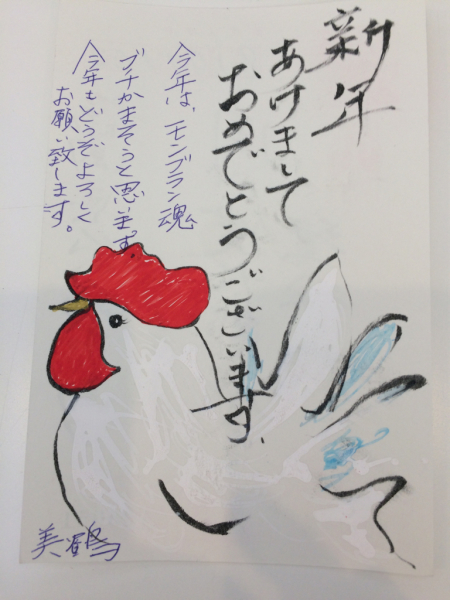 新年
あけまして
おめでとうございます、
今年は、モンブラン魂
ブチかまそうと思います。
今年もどうぞよろしく
お願い致します。
美鶴